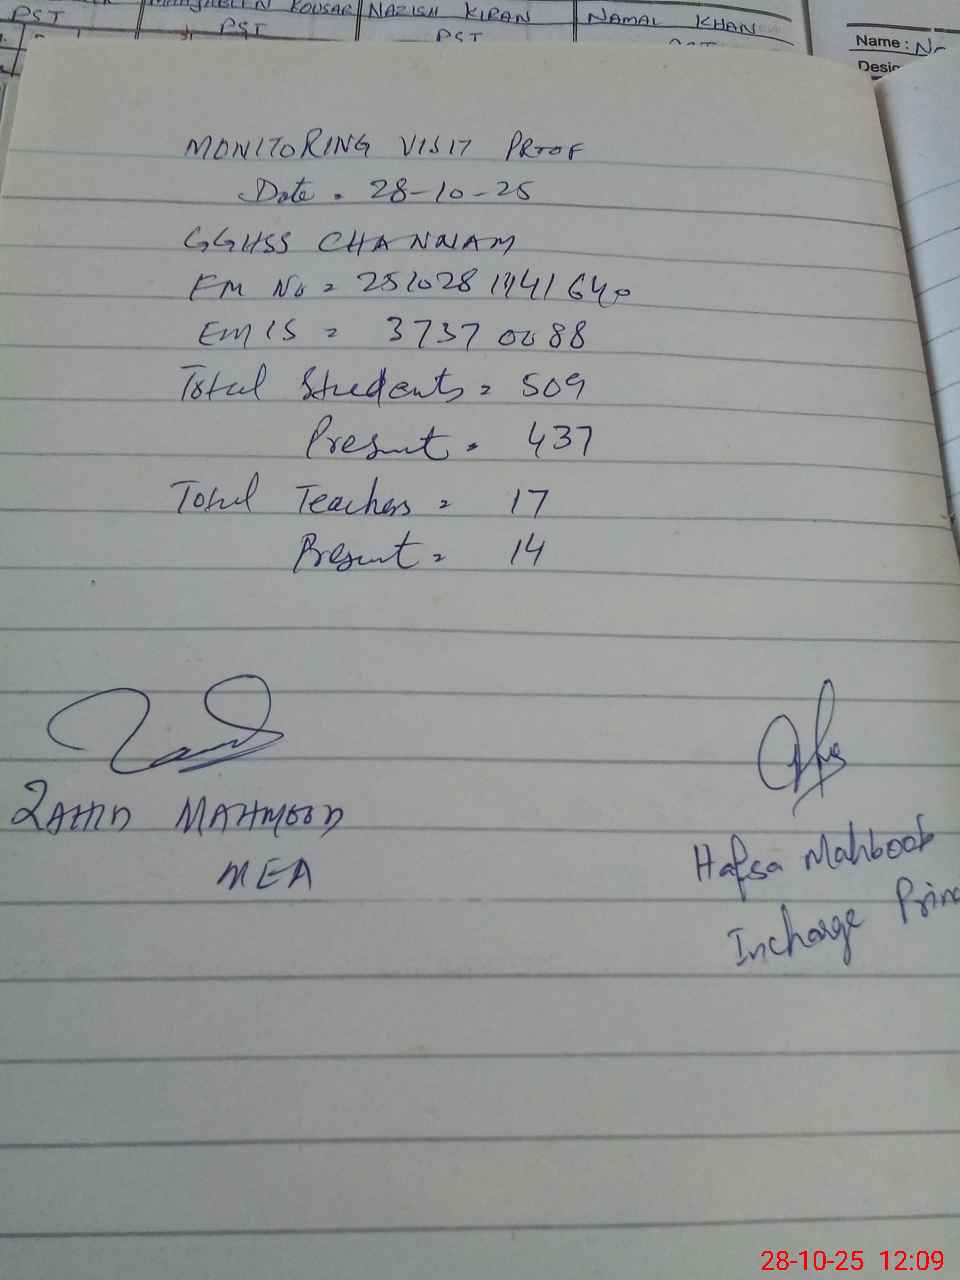 PST
KOUSAR
PST
NAZISH KIRAN
PST
NAMAL KHAN
Name :
MONITORING VISIT PROOF
Date = 28-10-25
GGHSS CHANNAM
EM No = 2510281141640
EMIS = 37370088
Total Students = 509
Present = 437
Total Teachers = 17
Present = 14
ZAHID MAHMOOD
MEA
Hafsa Mahboob
Incharge Princ
28-10-25 12:09